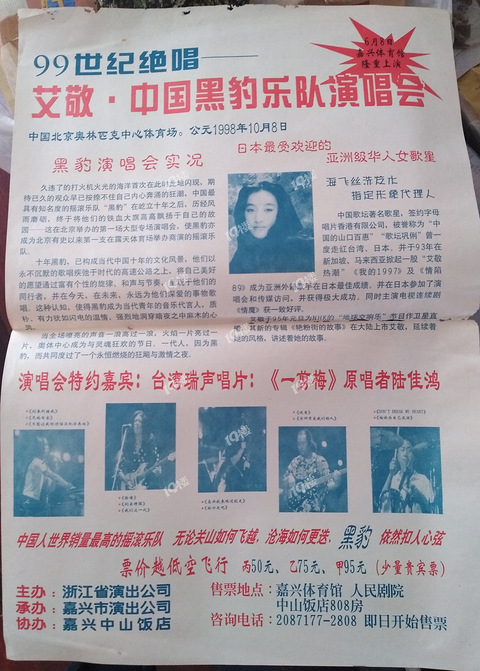 99世纪绝唱——
6月8日
嘉兴体育馆
隆重上演
艾敬·中国黑豹乐队演唱会
中国北京奥林匹克中心体育场。公元1998年10月8日
黑豹演唱会实况
久违了的打火机火光的海洋首次在此时此地闪现，期
待已久的观众早已按捺不住自己内心奔涌的狂潮，中国最
具有知名度的摇滚乐队“黑豹”在屹立十年之后，历经风
雨磨砺，终于将他们的铁血大旗高高飘扬于自己的故
园——这在北京举办的第一场大型专场演唱会，使黑豹亦
成为北京有史以来第一支在露天体育场举办商演的摇滚乐
队。
十年黑豹，已构成当代中国十年的文化风景，他们以
永不沉默的歌唱疾驰于时代的高速公路之上，将自己美好
的愿望通过富有个性的旋律、和声与节奏，呈现于他们的
同行者，并在今天、在未来，永远为他们亲爱的事物歌
唱。这种认知，使得黑豹成为当代青年的音乐代言人，质
朴、有力犹如闪电的温情、强烈地洞穿暗夜之中麻木的心
当全场喷亮的声音一浪高过一浪，火焰一片亮过一
片，奥体中心成为与灵魂狂欢的节日、一代人，因为黑
豹，而共同度过了一个永恒燃烧的狂飚与激情之夜．
日本最受欢迎的
亚洲级华人女歌星
海飞丝洗发水
指定形象代理人
中国歌坛著名歌星，签约字母
唱片香港有限公司，被誉称为“中
国的山口百惠”“歌坛巩俐”曾一
度走红台湾、日本，并于93年在
新加坡、马来西亚掀起一股“艾敬
热潮”《我的1997》及《情陷
89》成为亚洲外国歌手在日本最佳成绩，并在日本参加了演
唱会和传媒访问，并获得极大成功，同时主演电视连续剧
《情魔》获一致好评。
其新的专辑《艳粉街的故事》在大陆上市艾敬，延续着
的风格，讲述着她的故事．
演唱会特约嘉宾：台湾瑞声唱片：《一剪梅》原唱者陆佳鸿
•《DON'T BREAK MY HEART》
中国人世界销量最高的摇滚乐队 无论关山如何飞越，沧海如何更迭，黑豹 依然扣人心弦
票价越低空飞行 丙50元、乙75元、甲95元（少量贵宾票）
主办：浙江省演出公司
承办：嘉兴市演出公司
协办：嘉兴中山饭店
售票地点：嘉兴体育馆 人民剧院
中山饭店808房
咨询电话：2087177-2808 即日开始售票